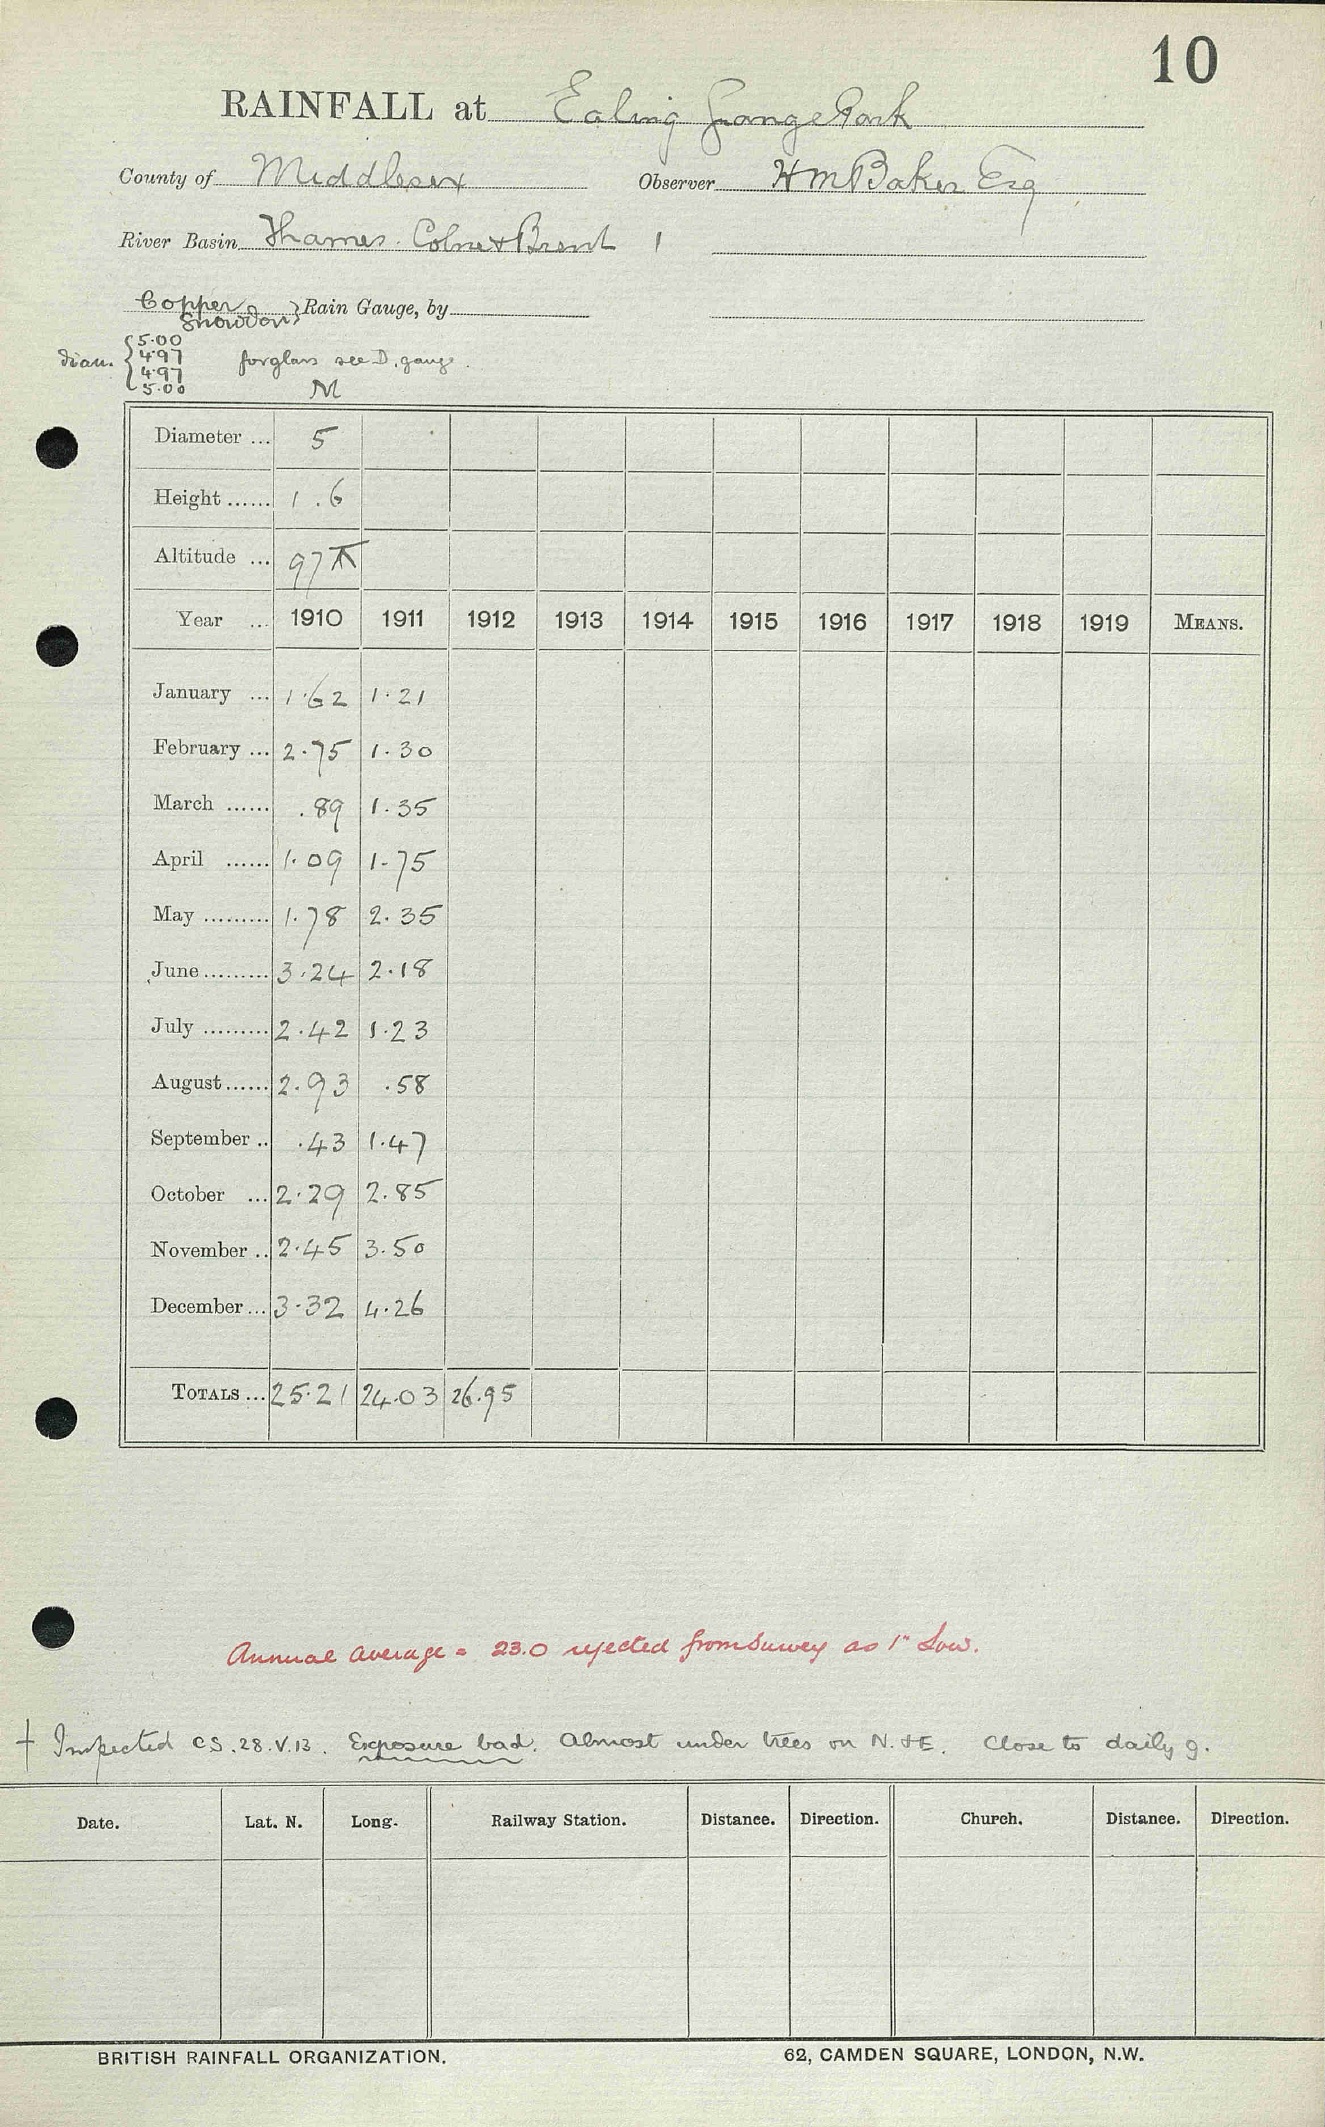 10
RAINFALL at Ealing Grange Park
County of Middlesex Observer H M Baker Esq
River Basin Thames. Colne & Brent 1
Copper Snowdon } Rain Gauge, by
diam. { 5.00 4.97 4.97 5.00 for glass see D. gauge.
M
Diameter ... 5
Height ...... 1 . 6
Altitude ... 97
Year ... 1910 1911 1912 1913 1914 1915 1916 1917 1918 1919 MEANS.
January ... 1.62 1.21
February ... 2.75 1.30
March ...... .89 1.35
April ...... 1.09 1.75
May ......... 1.78 2.35
June ......... 3.24 2.18
July ......... 2.42 1.23
August ...... 2.93 .58
September .. .43 1.47
October ... 2.29 2.85
November .. 2.45 3.50
December ... 3.32 4.26
TOTALS ... 25.21 24.03 26.95
Annual Average = 23.0 rejected from Survey as 1" Low.
† Inspected CS. 28.V.13. Exposure bad. Almost under trees on N. & E. Close to daily g.
Date. Lat. N. Long. Railway Station. Distance. Direction. Church. Distance. Direction.
BRITISH RAINFALL ORGANIZATION. 62, CAMDEN SQUARE, LONDON, N.W.